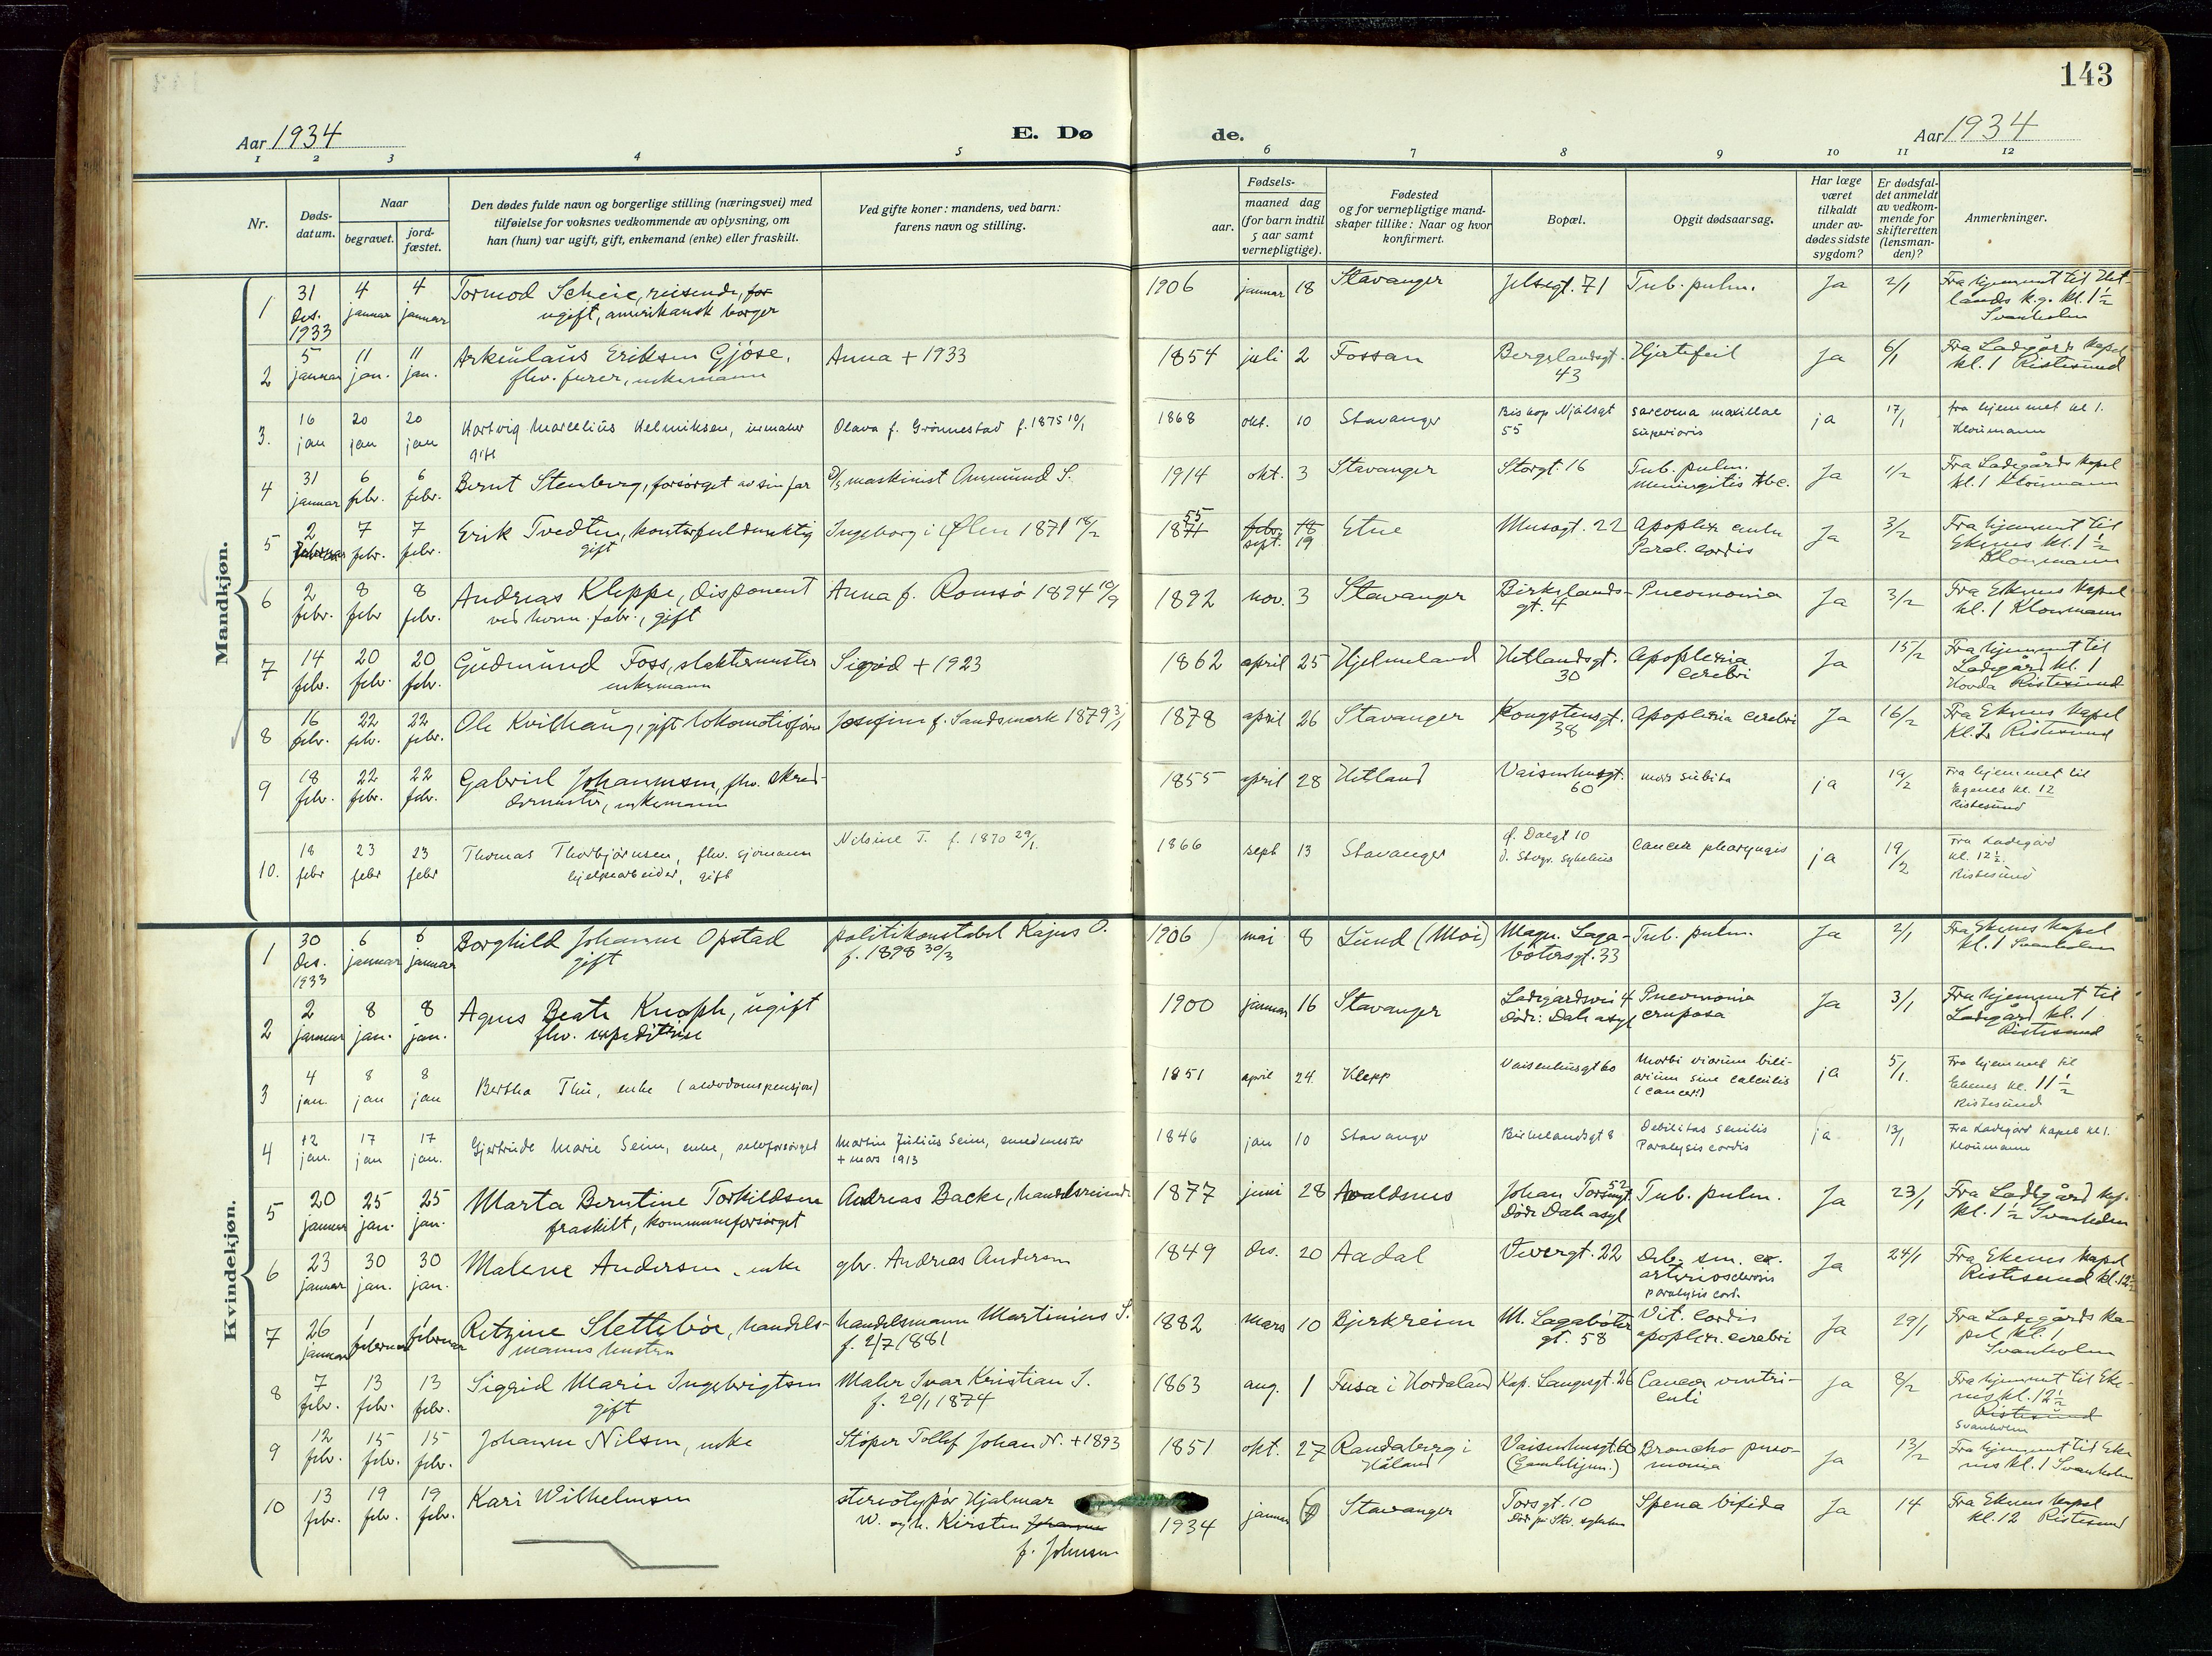 143
Aar 1934
E. Dø de.
Aar 1934
1 2 3 4 5 6 7 8 9 10 11 12
Nr.
Døds-
datum.
Naar
begravet.
jord-
fæstet.
Den dødes fulde navn og borgerlige stilling (næringsvei) med
tilføielse for voksnes vedkommende av oplysning, om
han (hun) var ugift, gift, enkemand (enke) eller fraskilt.
Ved gifte koner: mandens, ved barn:
farens navn og stilling.
aar.
Fødsels-
maaned dag
(for barn indtil
5 aar samt
vernepligtige).
Fødested
og for vernepligtige mand-
skaper tillike: Naar og hvor
konfirmert.
Bopæl.
Opgit dødsaarsag.
Har læge
været
tilkaldt
under av-
dødes sidste
sygdom?
Er dødsfal-
det anmeldt
av vedkom-
mende for
skifteretten
(lensman-
den)?
Anmerkninger.
Mandkjøn.
1
31
des.
1933
4
januar
4
januar
Tormod Scheie, reisende, for
ugift, amerikansk borger
1906 januar 18 Stavanger
Jelsagt. 71
Tub. pulm.
Ja
2/1
Fra hjemmet til Het-
lands k.g. kl. 1 1/2
Svanholm
2
5
januar
11
jan.
11
jan.
Arkenlaus Eriksen Gjöse,
flv. furer, enkemann
Anna + 1933
1854 juli 2 Fossan
Bergelandsgt.
43
Hjertefeil
Ja
6/1
Fra Ladegårds kapel
kl. 1 Ristesund
3.
16
jan
20
jan
20
jan
Hartvig Marcelius Helmiksen,
gift
Olava f. Grönnestad f. 1875 10/1
1868 okt. 10 Stavanger
Biskop Njålsgt
55
sarcoma maxillae
superioris
ja
17/1
fra hjemmet kl 1.
Kloumann
4
31
januar
6
febr.
6
febr.
Bernt Stenberg, forsörget av sin far
maskinist Ommund S.
1914 okt. 3 Stavanger
Storgt. 16
Tub. pulm.
Meningitis tbc.
Ja
1/2
Fra Ladegårds kapel
kl. 1 Kloumann
5
2
februar
7
febr.
7
febr.
Erik Tvedten, kontorfuldmektig
gift
Ingeborg i Ølen 1871 18/2
55
1871
febr. 18
sept. 19
Etne
Musegt. 22
Apoplex. cerebr
Paral. cordis
Ja
3/2
Fra hjemmet til
Ekenes kl. 1 1/2
Kloumann
6
2
febr.
8
febr
8
febr.
Andreas Kleppe, disponent
ved herm. fabr., gift
Anna f. Romsö 1894 10/9
1892 nov. 3 Stavanger
Birkelands-
gt. 4
Pneomonia
Ja
3/2
Fra Ekenes kapel
kl. 1 Kloumann
7
14
febr.
20
febr.
20
febr.
Gudmund Foss, slaktermester
enkemann
Sigrid + 1923
1862 april 25 Hjelmeland
Hetlandsgt.
30
Apoplexia
cerebri
Ja
15/2
Fra hjemmet til
Ladegård kl. 1
Hovda Ristesund
8
16
febr.
22
febr.
22
febr.
Ole Kvilhaug, gift lokomotivförer
Josefine f. Sandsmark 1879 3/1
1878 april 26 Stavanger
Kongstensgt.
38
Apoplexia cerebri
Ja
16/2
Fra Ekenes kapel
Kl. 2 Ristesund
9
18
febr.
22
febr.
22
febr.
Gabriel Johannesen, flv. skred-
dermester, enkemann
1855 april 28 Hetland
Vaisenhusgt.
60
mors subita
ja
19/2
Fra hjemmet til
Egenes kl. 12
Ristesund
10.
18
febr
23
febr
23
febr
Thomas Thorbjörnsen, flv. sjömann
hjelpearbeider, gift
Nilsine T. f. 1870 29/1.
1866 sept 13 Stavanger
Ø. Dalgt 10
d. Stvgr. sykehus
Cancer pharyngis
ja
19/2
Fra Ladegård
kl. 12 1/2.
Ristesund
Kvindekjøn.
1
30
des.
1933
6
januar
6
januar
Borghild Johanne Opstad
gift
politikonstabel Kajus O.
f. 1898 30/3
1906 mai 8 Lund (Moi)
Magn. Laga-
bøtersgt. 33
Tub. pulm.
Ja
2/1
Fra Ekenes kapel
kl. 1 Svanholm
2
2
januar
8
jan.
8
jan.
Agnes Beate Knoph, ugift
flv. expeditrise
1900 januar 16 Stavanger
Ladegårdsvei 4
Död: Dale asyl
Pneomonia
cruposa
Ja
3/1
Fra hjemmet til
Ladegård kl. 1
Ristesund
3
4
jan.
8
jan
8
jan
Bertha Thu, enke (alderdomspensjon)
1851 april 24 Klepp
Vaisenhusgt 60
Morbi viarum bili-
arium sine calculis
(cancer?)
ja
5/1.
Fra hjemmet til
Ekenes kl. 11 1/2
Ristesund
4
12
jan.
17
jan
17
jan.
Gjertrude Marie Seim, enke, selvforsörget
Martin Julius Seim, smedmester
+ mars 1913
1846 jan 10 Stavanger
Birkelandsgt 8
Debilitas senilis
Paralysis cordis
ja
13/1
Fra Ladegård kapel kl 1.
Kloumann
5
20
januar
25
jan.
25
jan.
Marta Berntine Torkildsen
fraskilt, kommuneforsörget
Andreas Backe, handelsreisende
1877 juni 28 Avaldsnes
Johan Torsøngt. 52
Död: Dale asyl
Tub. pulm.
Ja
23/1
Fra Ladegård kap.
kl. 1 1/2 Svanholm
6
23
januar
30
jan.
30
jan.
Malene Andersen, enke
gbr. Andreas Andersen
1849 des. 20 Aadal
Vevergt. 22
Deb. sen. ex.
arteriosclerosis
paralysis cord.
Ja
24/1
Fra Ekenes kapel
Ristesund kl. 12 1/2
7
26
januar
1
februar
1
februar
Retzine Slettebøe, handels-
manns hustru
handelsmann Martinius S.
f. 2/7 1881
1882 mars 10 Bjerkreim
M. Lagabøter
gt. 58
Vit. cordis
apoplex. cerebri
Ja
29/1
Fra Ladegårds ka-
pel kl. 1
Svanholm
8
7
febr.
13
febr.
13
febr.
Sigrid Marie Ingebrigtsen
gift
Maler Ivar Kristian I.
f. 20/1 1874
1863 aug. 1 Fusa i Hordaland
Kap. Langesgt. 26
Cancer ventri-
culi
Ja
8/2
Fra hjemmet til Eke-
nes kl. 12 1/2
Ristesund
Svanholm
9
12
febr.
15
febr.
15
febr.
Johanne Nilsen, enke
Støper Tollef Johan N. + 1893
1851 okt. 27 Randaberg i
Håland
Vaisenhusgt. 60
(Gamlehjem.)
Broncho pneo-
monia
Ja
13/2
Fra hjemmet til Eke
nes kl. 1 Svanholm
10
13
febr.
19
febr.
19
febr.
Kari Wilhelmsen
stereotypör Hjalmar
W. og h. Kirsten Johanne
f. Johnsen
1934 januar Stavanger
Torsgt. 10
Död på Stv. sykehus
Spena bifida
Ja
14
Fra Ekenes kapel
kl. 12 Ristesund